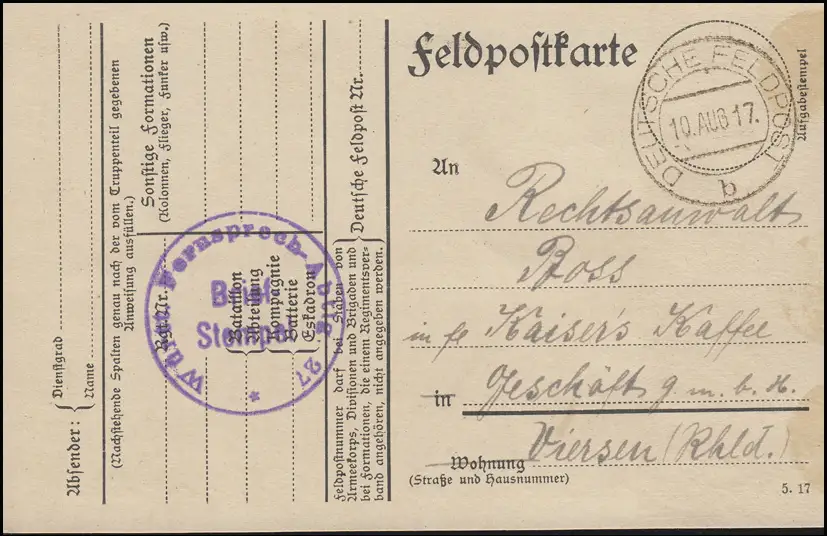 Feldpostkarte
Aufgabestempel
DEUTSCHE FELDPOST
10. AUG 17.
b
An
Rechtsanwalt
Boss
in fa Kaiser's Kaffee
in
Geschäft g. m. b. H.
Viersen (Rhld.)
Wohnung
(Straße und Hausnummer)
5. 17
Absender:
Dienstgrad
Name
(Nachstehende Spalten genau nach der vom Truppenteil gegebenen
Anweisung ausfüllen.)
Sonstige Formationen
(Kolonnen, Flieger, Funker usw.)
Rgt. Nr.
Bataillon
Abteilung
Kompagnie
Batterie
Eskadron
Deutsche Feldpost Nr.
Feldpostnummer darf bei Stäben von
Armeekorps, Divisionen und Brigaden und
bei Formationen, die einem Regimentsver-
band angehören, nicht angegeben werden.
Fernsprech-Abtlg 27
Brief
Stempel